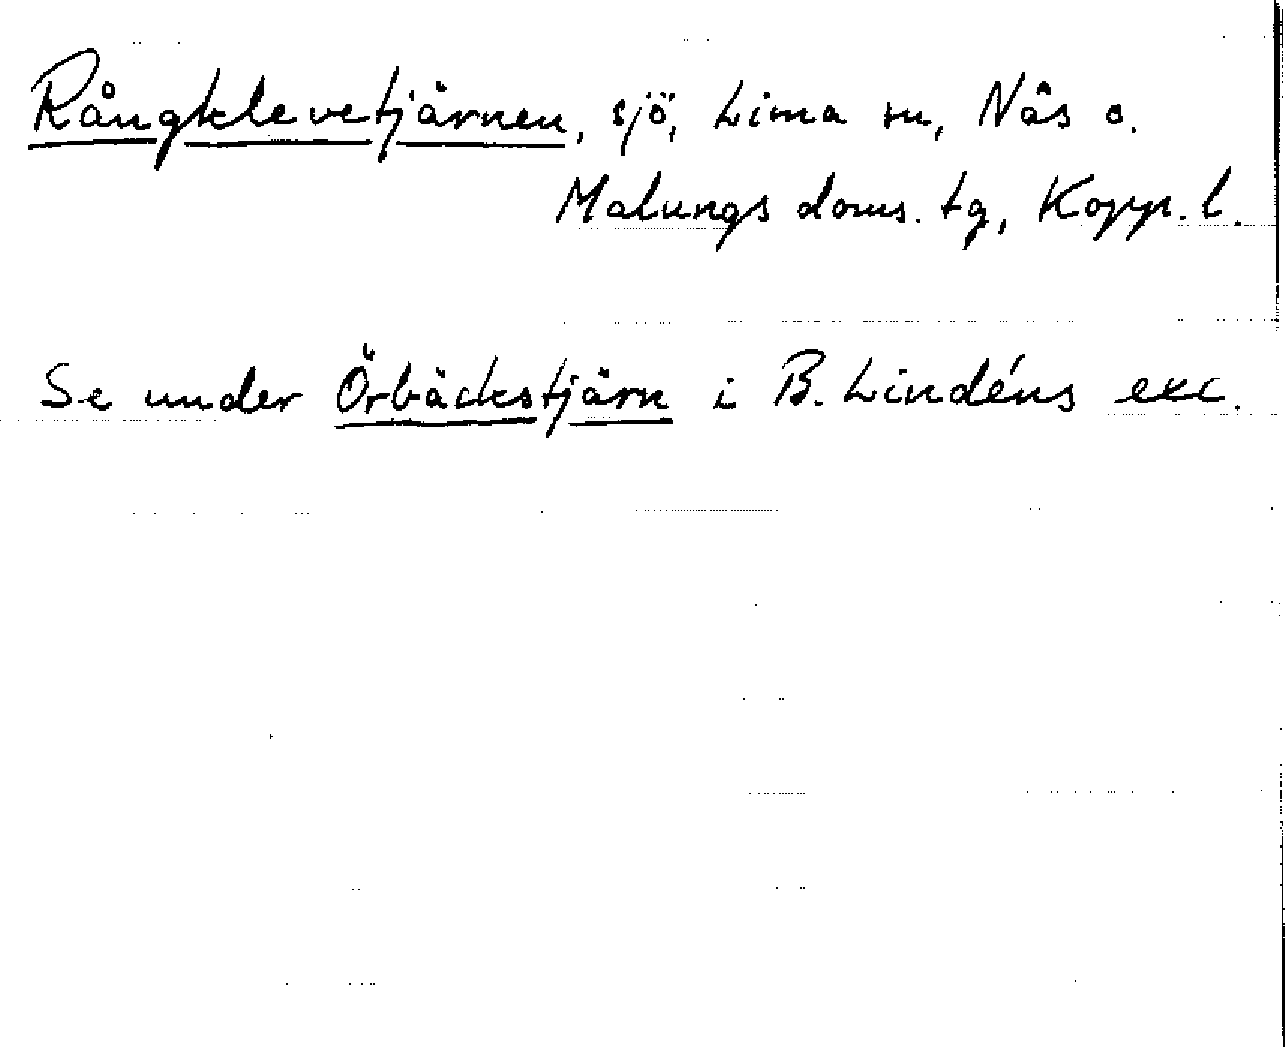 Rångklevetjärnen, sjö, Lima sn, Näs o.
Malungs doms. tg, Kopp. l.
Se under Örbäckstjärn i B. Lindéns exc.